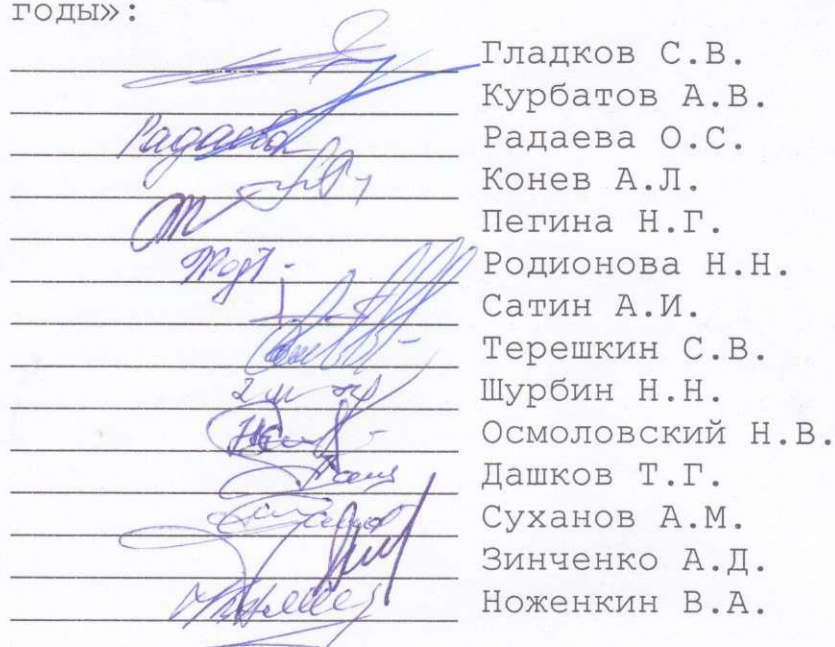 годы»:
Гладков С.В.
Курбатов А.В.
Радаева Радаева О.С.
Конев А.Л.
Пегина Н.Г.
Родионова Н.Н.
Сатин А.И.
Терешкин С.В.
Шурбин Н.Н.
Осмоловский Н.В.
Дашков Т.Г.
Суханов А.М.
Зинченко А.Д.
Ноженкин В.А.